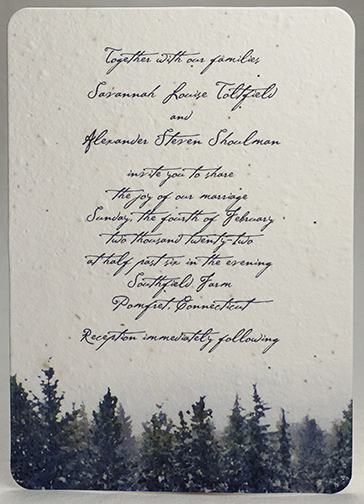 Together with our families
Savannah Louise Toltfield
and
Alexander Steven Shoulman
invite you to share
the joy of our marriage
Sunday, the fourth of February
two thousand twenty-two
at half past six in the evening
Southfield Farm
Pomfret, Connecticut
Reception immediately following